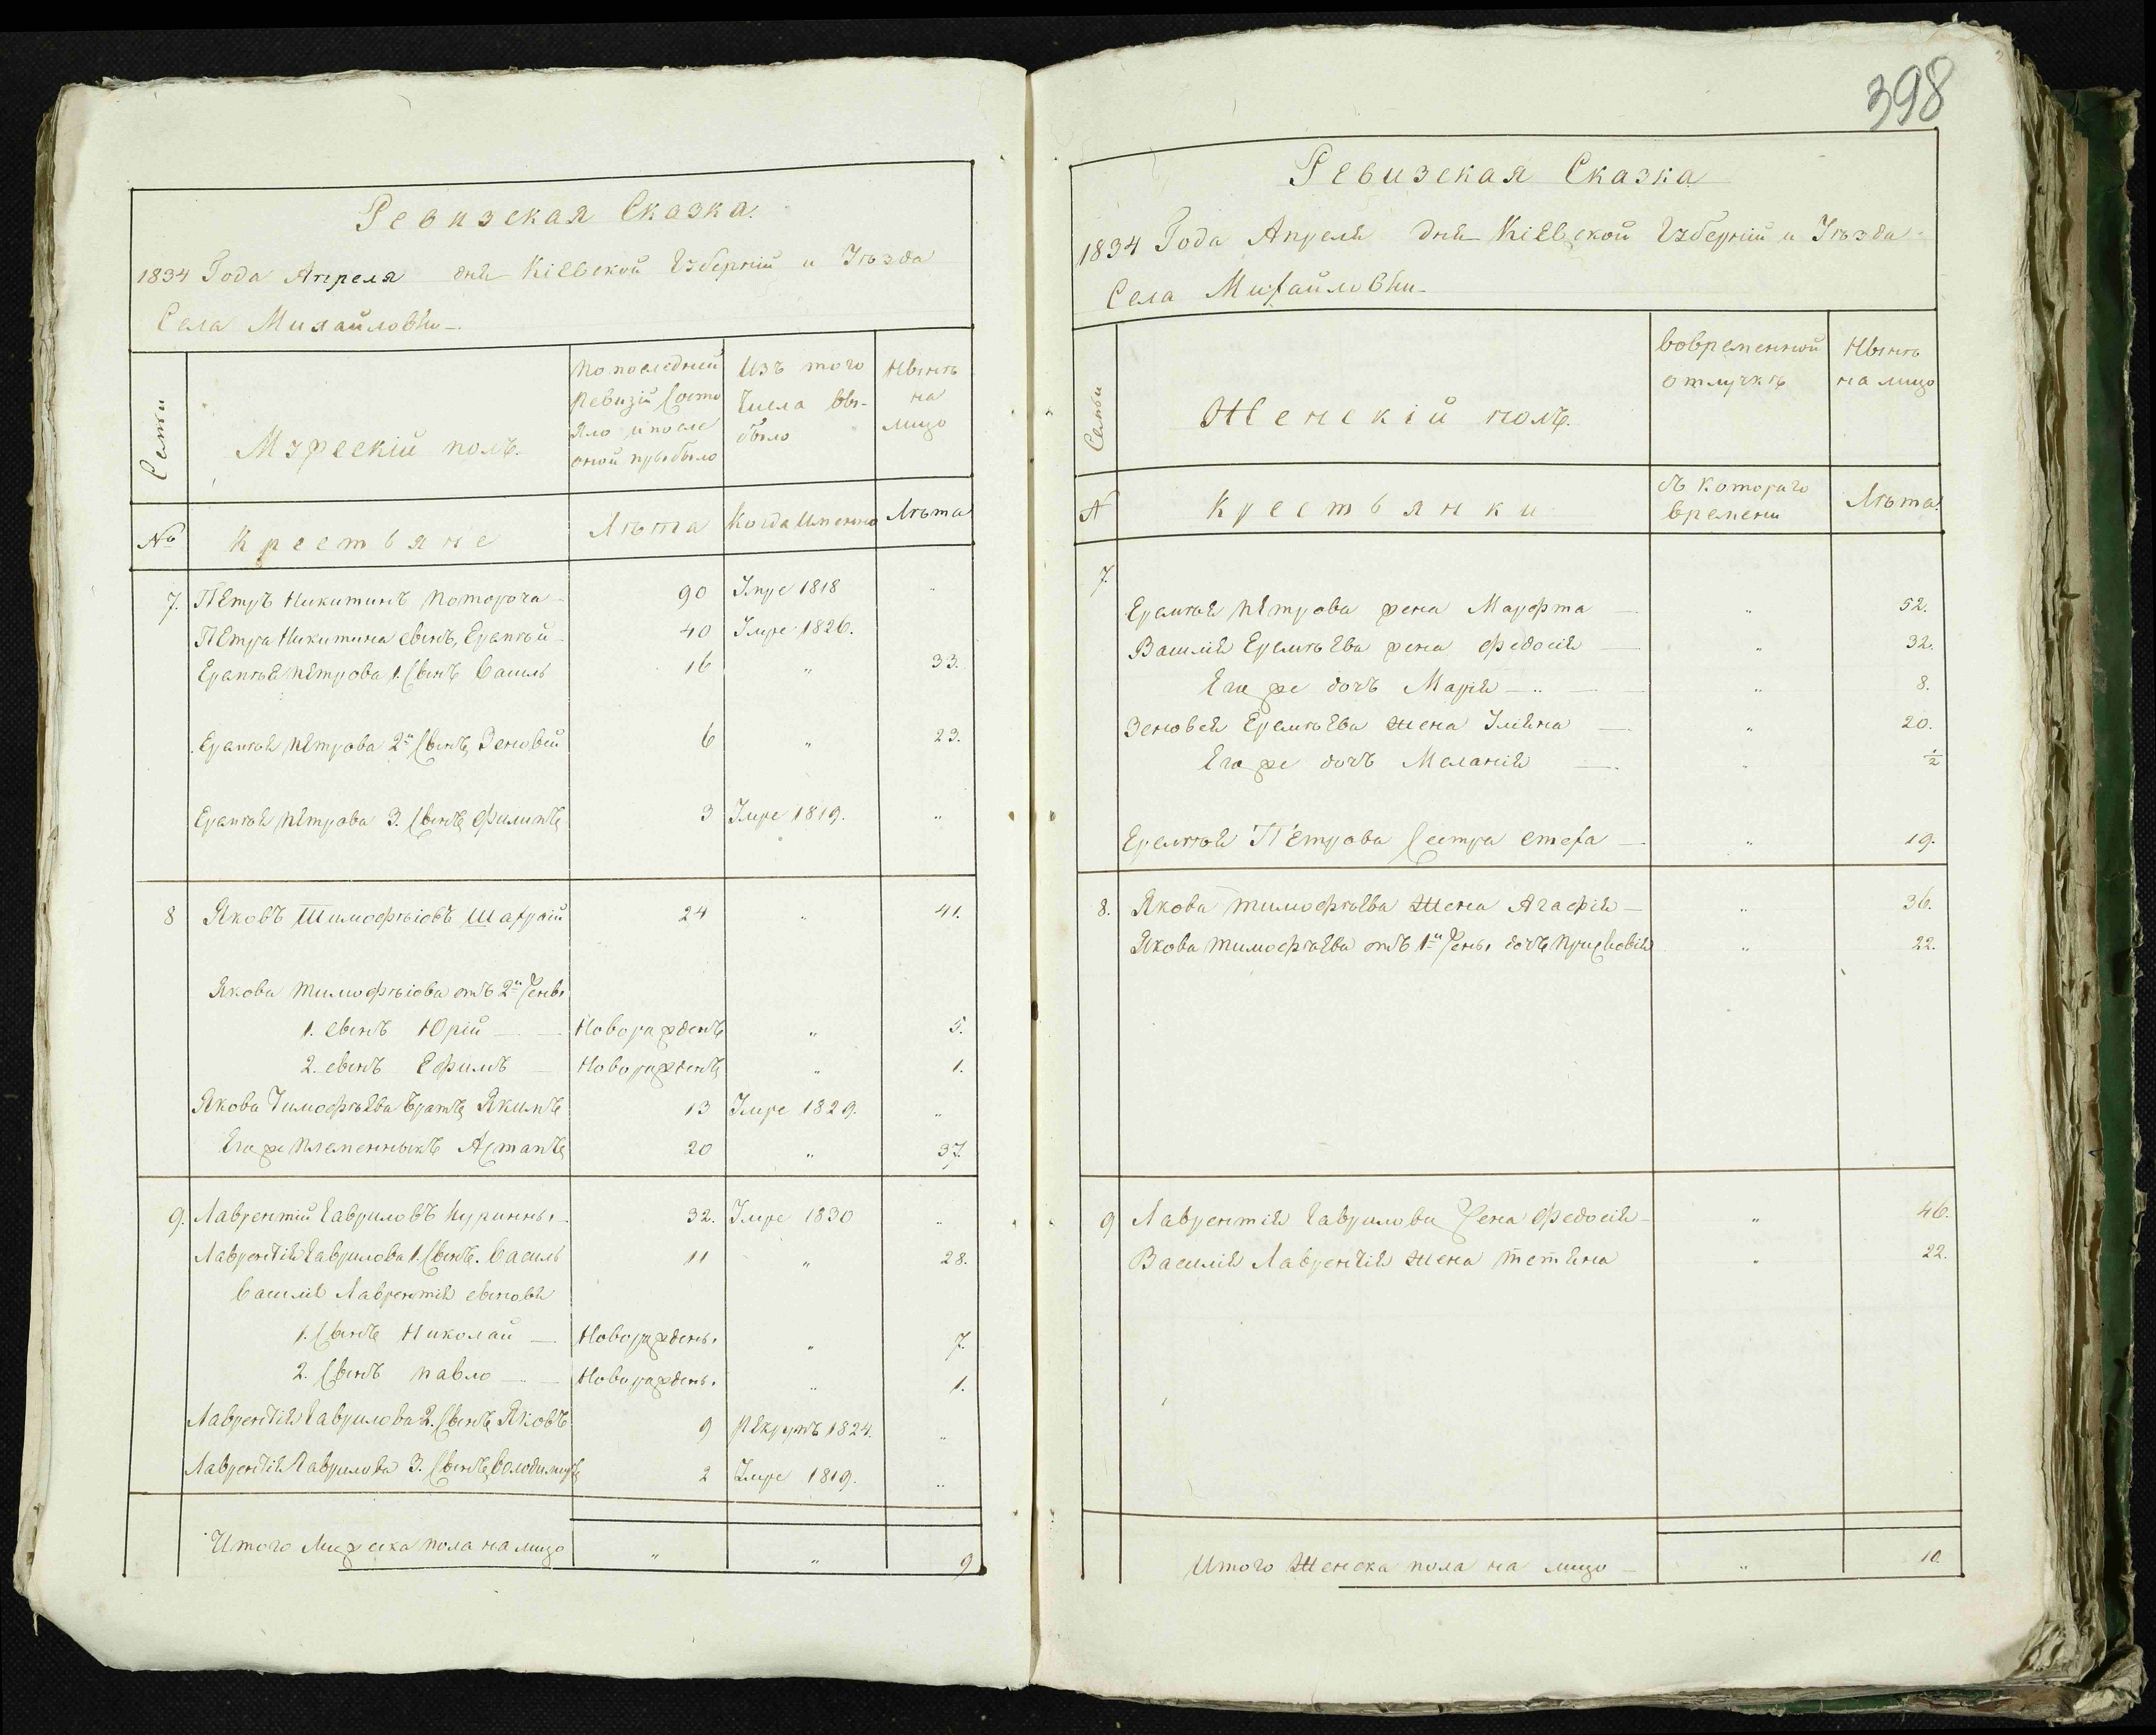 398
Ревизская Сказка.
1834 Года Апреля дня Кіевской Губерніи и Уѣзда
Села Михайловки
Семьи
Мужескій полъ.
по последней
Ревизіи Состо
яло и после
оной прибыло
Изъ того
Числа вы-
было
Нынѣ
на
лицо
№
Крестьяне
Лѣта
Когда Именно
Лѣта
7. Пётръ Никитинъ Потороча 90 Умре 1818 "
Пётра Никитина сынъ, Еремѣй 40 Умре 1826.
Еремѣя пётрова 1. Сынъ Василь 16 " 33.
Еремѣя пётрова 2й Сынъ, Зеновей 6 " 23.
Еремѣя пётрова 3. Сынъ Филипъ 3 Умре 1819. "
8 Яковъ Тимофѣіовъ 24 " 41.
Якова Тимофѣіова отъ 2й Жены
1. сынъ Юрій Новорожденъ " 5.
2. сынъ Ефимъ Новорожденъ " 1.
Якова Тимофѣева братъ Якимъ 13 Умре 1829. "
Его же племенныкъ Астапъ 20 " 37.
9. Лаврентій Гавриловъ Куринны 32. Умре 1830 "
Лаврентія Гаврилова 1. Сынъ. Василь 11 " 28.
Василя Лаврентія сыновя
1. Сынъ Николай Новорождены " 7.
2. Сынъ павло Новорождены " 1.
Лаврентія Гаврилова 2. Сынъ Яковъ 9 рекрутъ 1824. "
Лаврентія Гаврилова 3. Сынъ Володимиръ 2 Умре 1819. "
Итого Мужеска пола на лицо " " 9
Ревизская Сказка
1834 Года Апреля дня Кіевской Губерніи и Уѣзда
Села Михайловки
Семьи
Женскій полъ.
вовременной
отлучкѣ
Нынѣ
на лицо
№
Крестьянки
съ котораго
времени
Лѣта.
7.
Еремѣя пётрова жена Марфта " 52.
Василія Еремѣева жена Федосія " 32.
Его же дочъ Марія " 8.
Зеновея Еремѣева жена Уліяна " 20.
Его же дочъ Меланія " ½
Еремѣя Пётрова Сестра стеха " 19.
8. Якова тимофѣева жена Агафія " 36.
Якова тимофѣева отъ 1й Жены дочъ присковія " 22.
9 Лаврентія Гаврилова Жена Федосія " 46.
Василія Лаврентія жена тетяна " 22.
Итого Женска пола на лицо " 10.